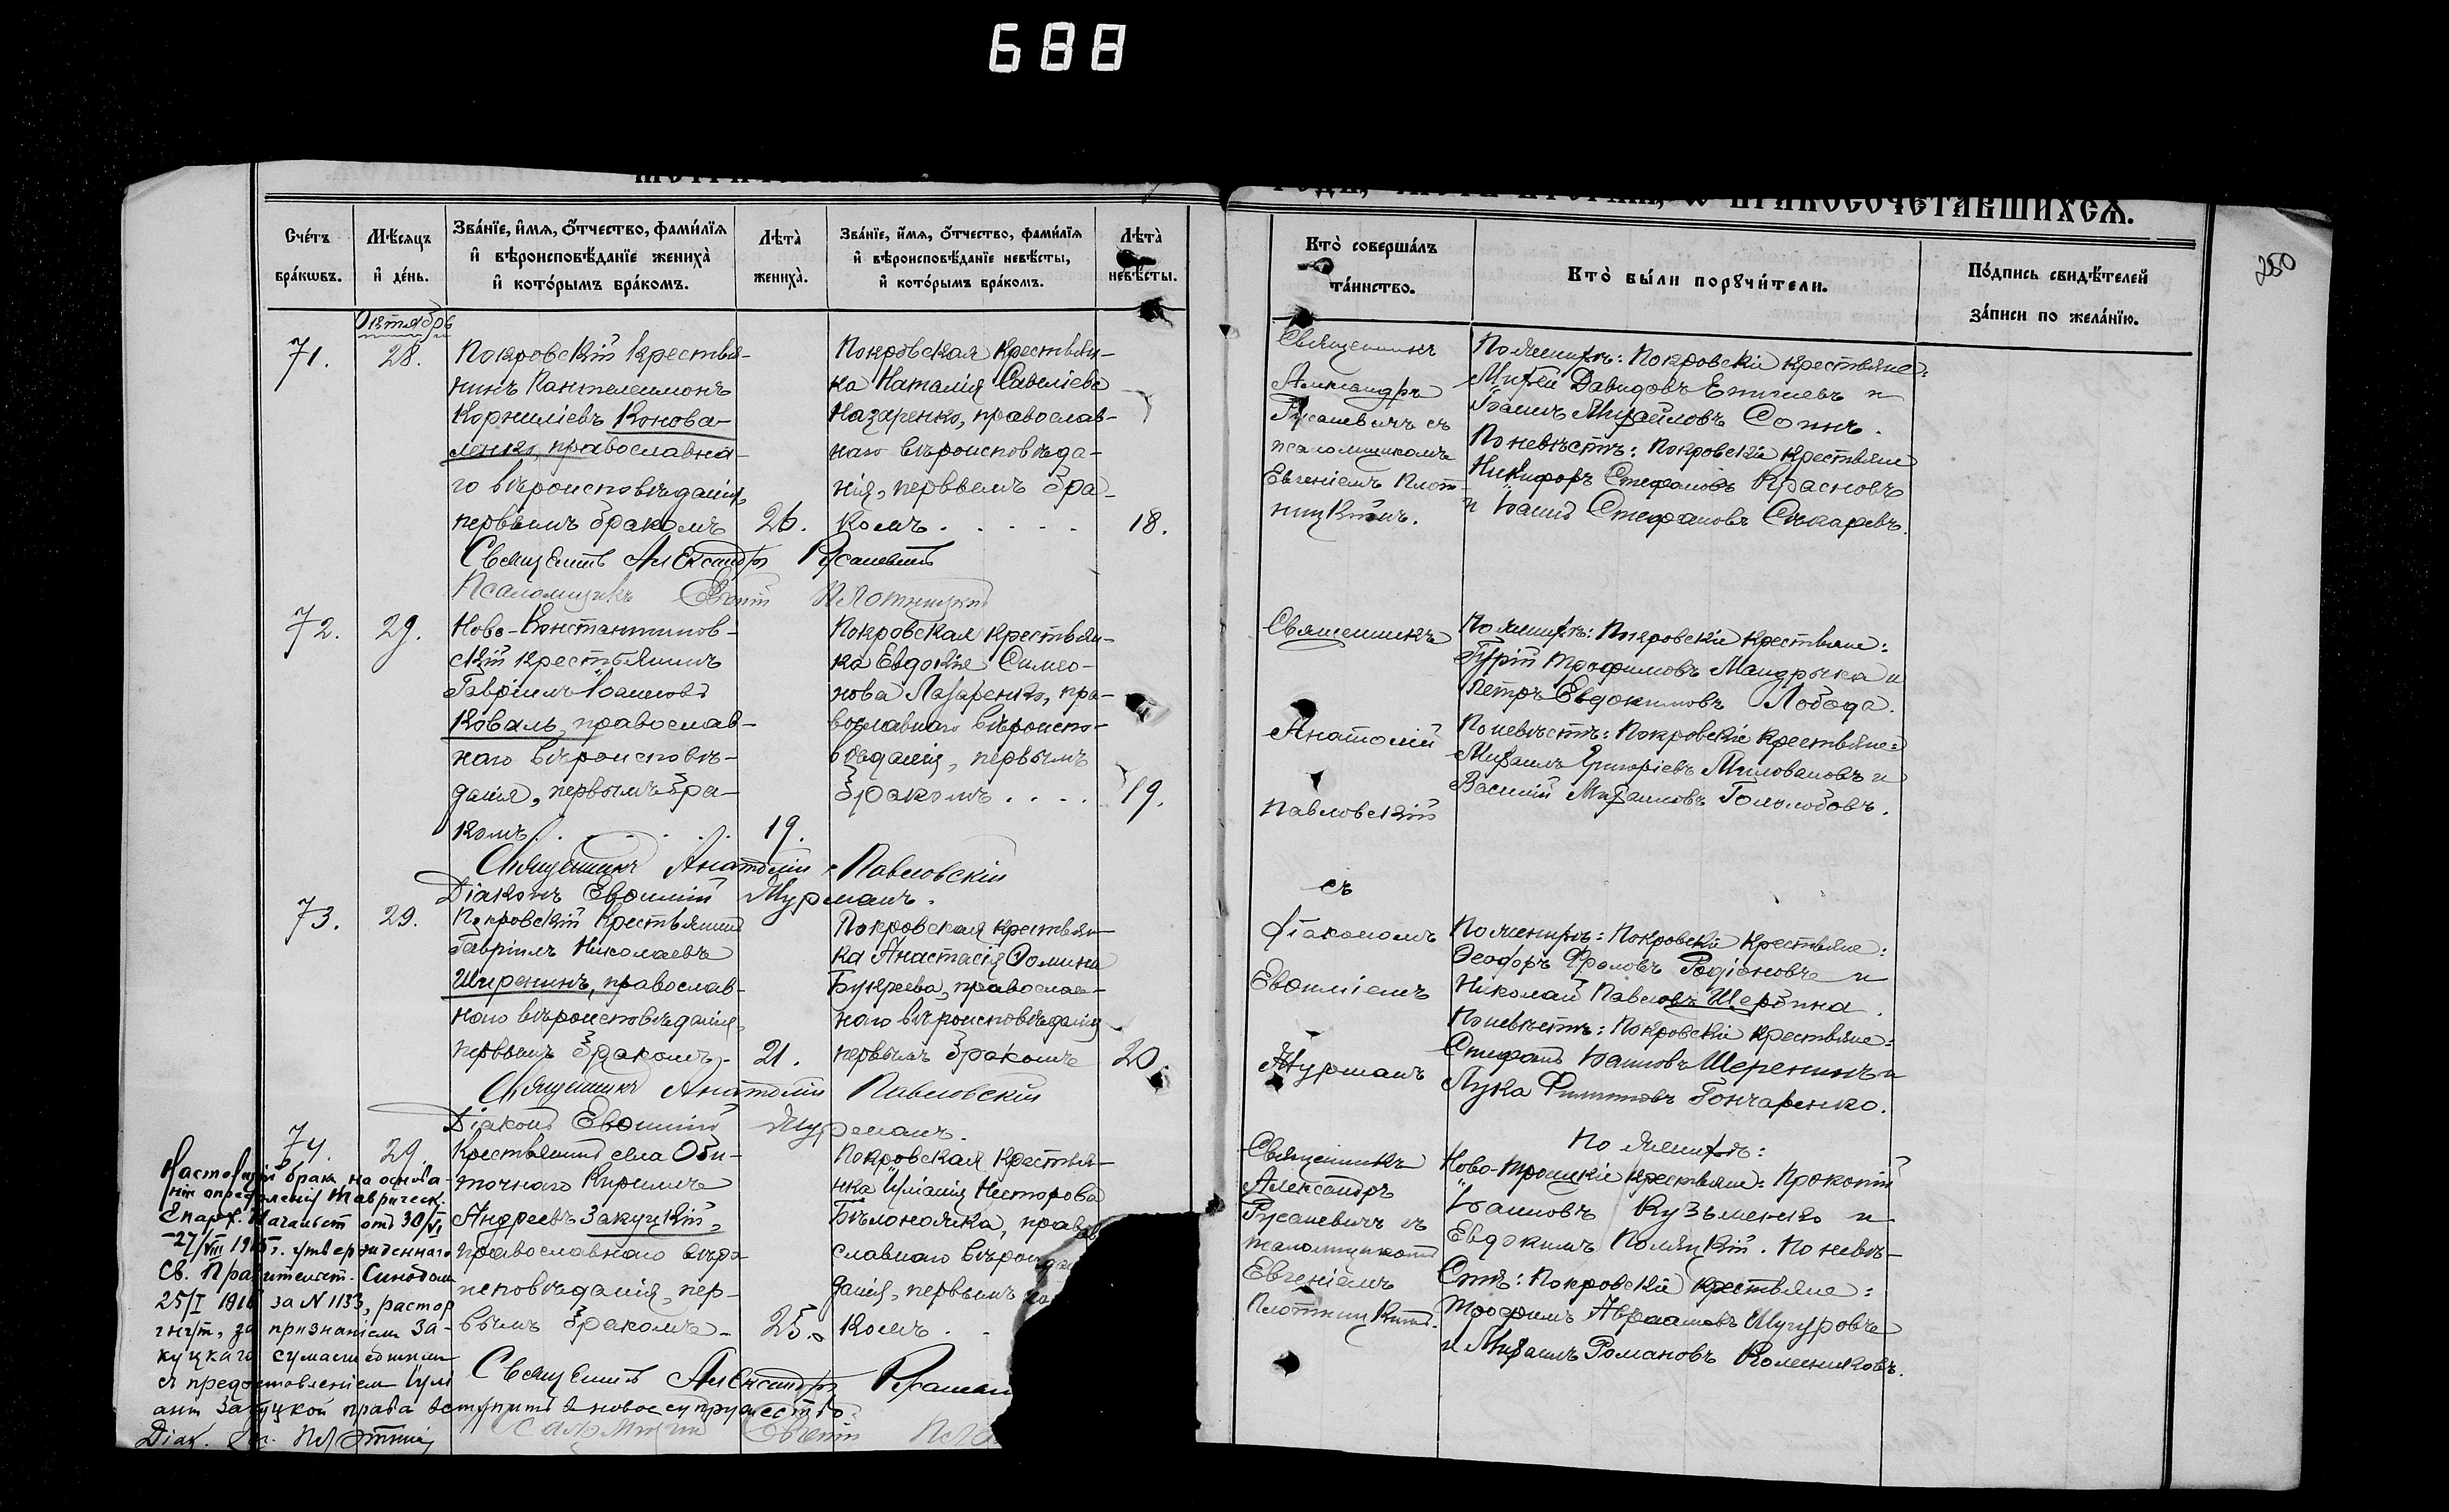 688
250
годъ, часть вторая, ѡ бракосочетавшихся.
Счетъ бракѡвъ.
Мѣсяцъ и день.
Званіе, имя, отчество, фамилія
и вѣроисповѣданіе жениха
и которымъ бракомъ.
Лѣта жениха.
Званіе, имя, отчество, фамилія
и вѣроисповѣданіе невѣсты,
и которымъ бракомъ.
Лѣта невѣсты.
Кто совершалъ
таинство.
Кто были поручители.
Подпись свидѣтелей
записи по желанію.
Октябрь
71.
28.
Покровскій крестья-
нинъ Пантелеимонъ
Корниліевъ Конова-
ленко, православна-
го вѣроисповѣданія,
первымъ бракомъ
26.
Покровская крестьян-
ка Наталія Савеліева
Назаренко, православ-
наго вѣроисповѣда-
нія, первымъ бра-
комъ . . . . .
18.
Священникъ
Александръ
Русаневичъ съ
псаломщикомъ
Евгеніемъ Плот-
ницкимъ.
По женихѣ: Покровскіе крестьяне:
Давидовъ и
Іоаннъ Михайловъ Сопинъ.
По невѣстѣ: Покровскіе крестьяне
Никифоръ Стефановъ Красновъ
и Іоаннъ Стефановъ
Священникъ Александръ Русаневичъ
Псаломщикъ Евгеній Плотницкій
72.
29.
Ново-Константинов-
скій крестьянинъ
Гавріилъ Іоанновъ
Коваль, православ-
наго вѣроисповѣ-
данія, первымъ бра-
комъ . . . . .
19.
Покровская крестьян-
ка Евдокія Симео-
нова Лазаренко, пра-
вославнаго вѣроиспо-
вѣданія, первымъ
бракомъ . . . .
19.
Священникъ
Анатолій
Павловскій
съ
діакономъ
Евѳиміемъ
Мурманъ
По женихѣ: Покровскіе крестьяне:
Гурій Трофимовъ Мандрыка и
Петръ Евдокимовъ Лобода.
По невѣстѣ: Покровскіе крестьяне:
Михаилъ Григоріевъ Миловановъ и
Василій Михаиловъ Гололобовъ.
Священникъ Анатолій Павловскій
Діаконъ Евѳимій Мурманъ.
73.
29.
Покровскій крестьянинъ
Гавріилъ Николаевъ
Шеренинъ, православ-
наго вѣроисповѣданія,
первымъ бракомъ
21.
Покровская крестьян-
ка Анастасія Ѳомина
Букреева, православ-
наго вѣроисповѣданія
первымъ бракомъ
20.
По женихѣ: Покровскіе крестьяне:
Ѳеодоръ Фроловъ Родіоновъ и
Николай Павловъ Щербина.
По невѣстѣ: Покровскіе крестьяне:
Стефанъ Іоанновъ Шеренинъ и
Лука Филипповъ Гончаренко.
Священникъ Анатолій Павловскій
Діаконъ Евѳимій Мурманъ.
74.
29.
Крестьянинъ села Оби-
точнаго Кириллъ
Андреевъ Закуцкій,
православнаго вѣро-
исповѣданія, пер-
вымъ бракомъ
25.
Покровская крестья-
нка Іуліанія Несторова
Бѣлоножка, право-
славнаго
данія, первымъ
комъ . .
Священникъ
Александръ
Русаневичъ съ
псаломщикомъ
Евгеніемъ
Плотницкимъ.
По женихѣ:
Ново-Троицкіе крестьяне: Прокопій
Іоанновъ Кузьменко и
Евдокимъ Поляцкій. По невѣ-
стѣ: Покровскіе крестьяне:
Трофимъ Авраамовъ Шугуровъ
и Михаилъ Романовъ Колениковъ.
Священникъ Александръ
Псаломщикъ Евгеній
Настоящій бракъ, на основа-
ніи опредѣленія Таврическ.
Епарх. Начальст. отъ 30/VI
-27/VIII 1915 г. утвержденнаго
Св. Правительст. Синодомъ
25/I 1916 за N 1133, растор
гнут, за признаніемъ За-
куцкаго сумасшедшимъ
съ предоставленіемъ Іулі
аніи Закуцкой права вступить в новое супружество.
Діак. Ев. Плотниц